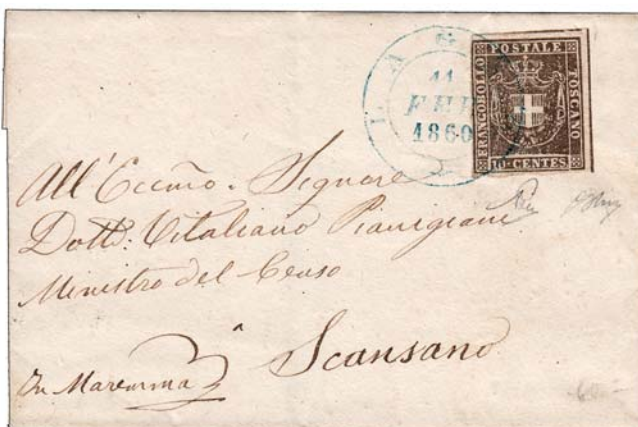 FRANCOBOLLO POSTALE TOSCANO
10 CENTES
11
FEB
1860
All'Eccmo. Signore
Dott: Vitaliano Pianigiani
Ministro del Censo
a Scansano
In Maremma